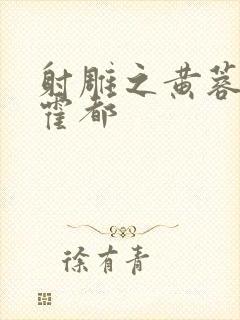 射雕之黄蓉
霍都
徐有青